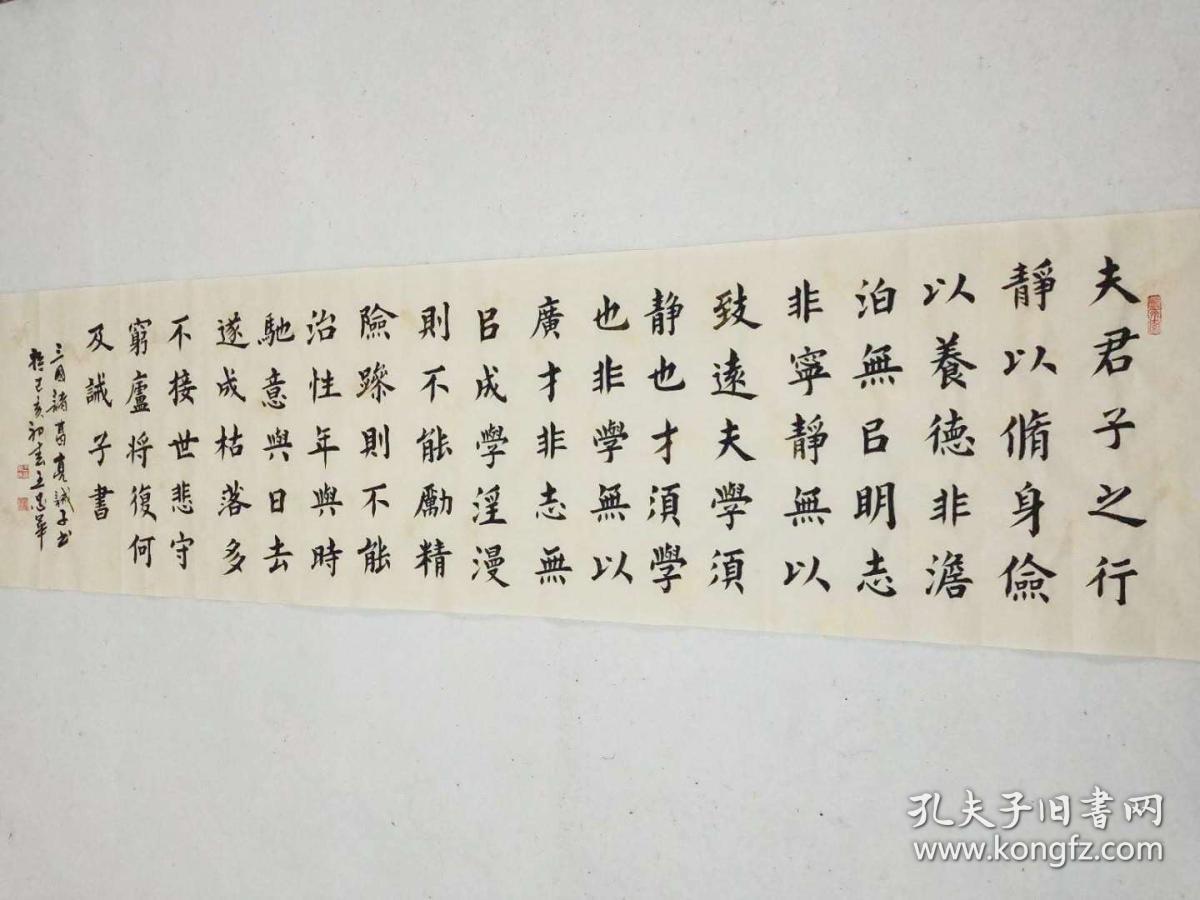 夫君子之行
靜以脩身儉
以養德非澹
泊無㠯明志
非寧靜無以
致遠夫學須
静也才須學
也非學無以
廣才非志無
㠯成學淫漫
則不能勵精
險躁則不能
治性年與時
馳意與日去
遂成枯落多
不接世悲守
窮廬将復何
及誡子書
三国諸葛亮誡子书
己亥初春王忠華
孔夫子旧书网
www.kongfz.com